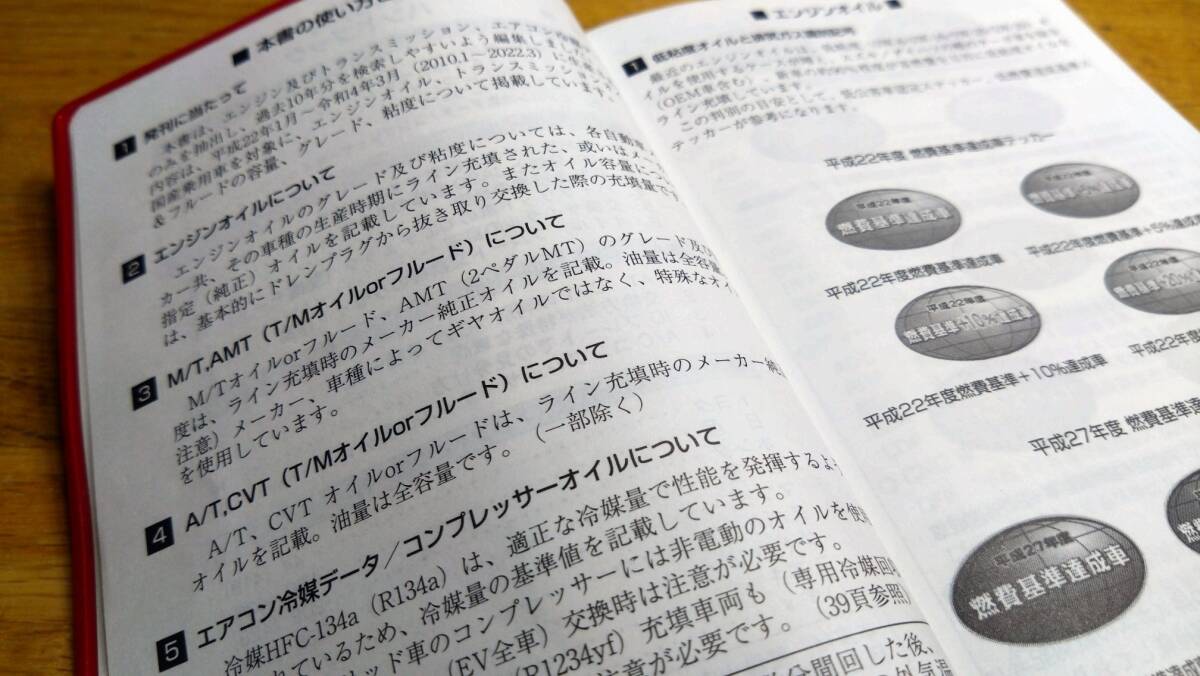 ■ 本書の使い方と
1 発刊に当たって
本書は、エンジン及びトランスミッション、エアコン
のみを抽出し、過去10年分を検索しやすいよう編集しま
内容は、平成22年1月～令和4年3月（2010.1－2022.3）
国産乗用車を対象に、エンジンオイル、トランスミッション
＆フルードの容量、グレード、粘度について掲載しています。
2 エンジンオイルについて
エンジンオイルのグレード及び粘度については、各自動車
カー共、その車種の生産時期にライン充填された、或いはメー
指定（純正）オイルを記載しています。またオイル容量につ
は、基本的にドレンプラグから抜き取り交換した際の充填量で
3 M/T,AMT（T/Mオイルorフルード）について
M/Tオイルorフルード、AMT（2ペダルMT）のグレード及び
度は、ライン充填時のメーカー純正オイルを記載。油量は全容量
注意）メーカー、車種によってギヤオイルではなく、特殊なオイ
を使用しています。
4 A/T,CVT（T/Mオイルorフルード）について
A/T、CVT オイルorフルードは、ライン充填時のメーカー純
オイルを記載。油量は全容量です。（一部除く）
5 エアコン冷媒データ／コンプレッサーオイルについて
冷媒HFC-134a（R134a）は、適正な冷媒量で性能を発揮するよ
れているため、冷媒量の基準値を記載しています。
ッド車のコンプレッサーには非電動のオイルを使
（EV全車）交換時は注意が必要です。
（R1234yf）充填車両も（専用冷媒回
注意が必要です。（39頁参照
分間回した後、
外気温
■ エンジンオイル ■
1 低粘度オイルと
最近のエンジンオイルは、
イルを使用するケースが増え、
（OEM車含も）、
ライン充填しています。
この判別の目安として、
テッカーが参考になります。
平成22年度 燃費基準達成車テッカー
平成22年度
燃費基準達成車
平成22年度
平成22年度燃費基準達成車
平成22年度燃費基準+5%達成
平成22年度
燃費基準+10%達成車
平成22年度
燃費基準+20%達成
平成22年度燃費基準＋10%達成車
平成22年
平成27年度 燃費基準
平成27年度
燃費基準達成車
燃